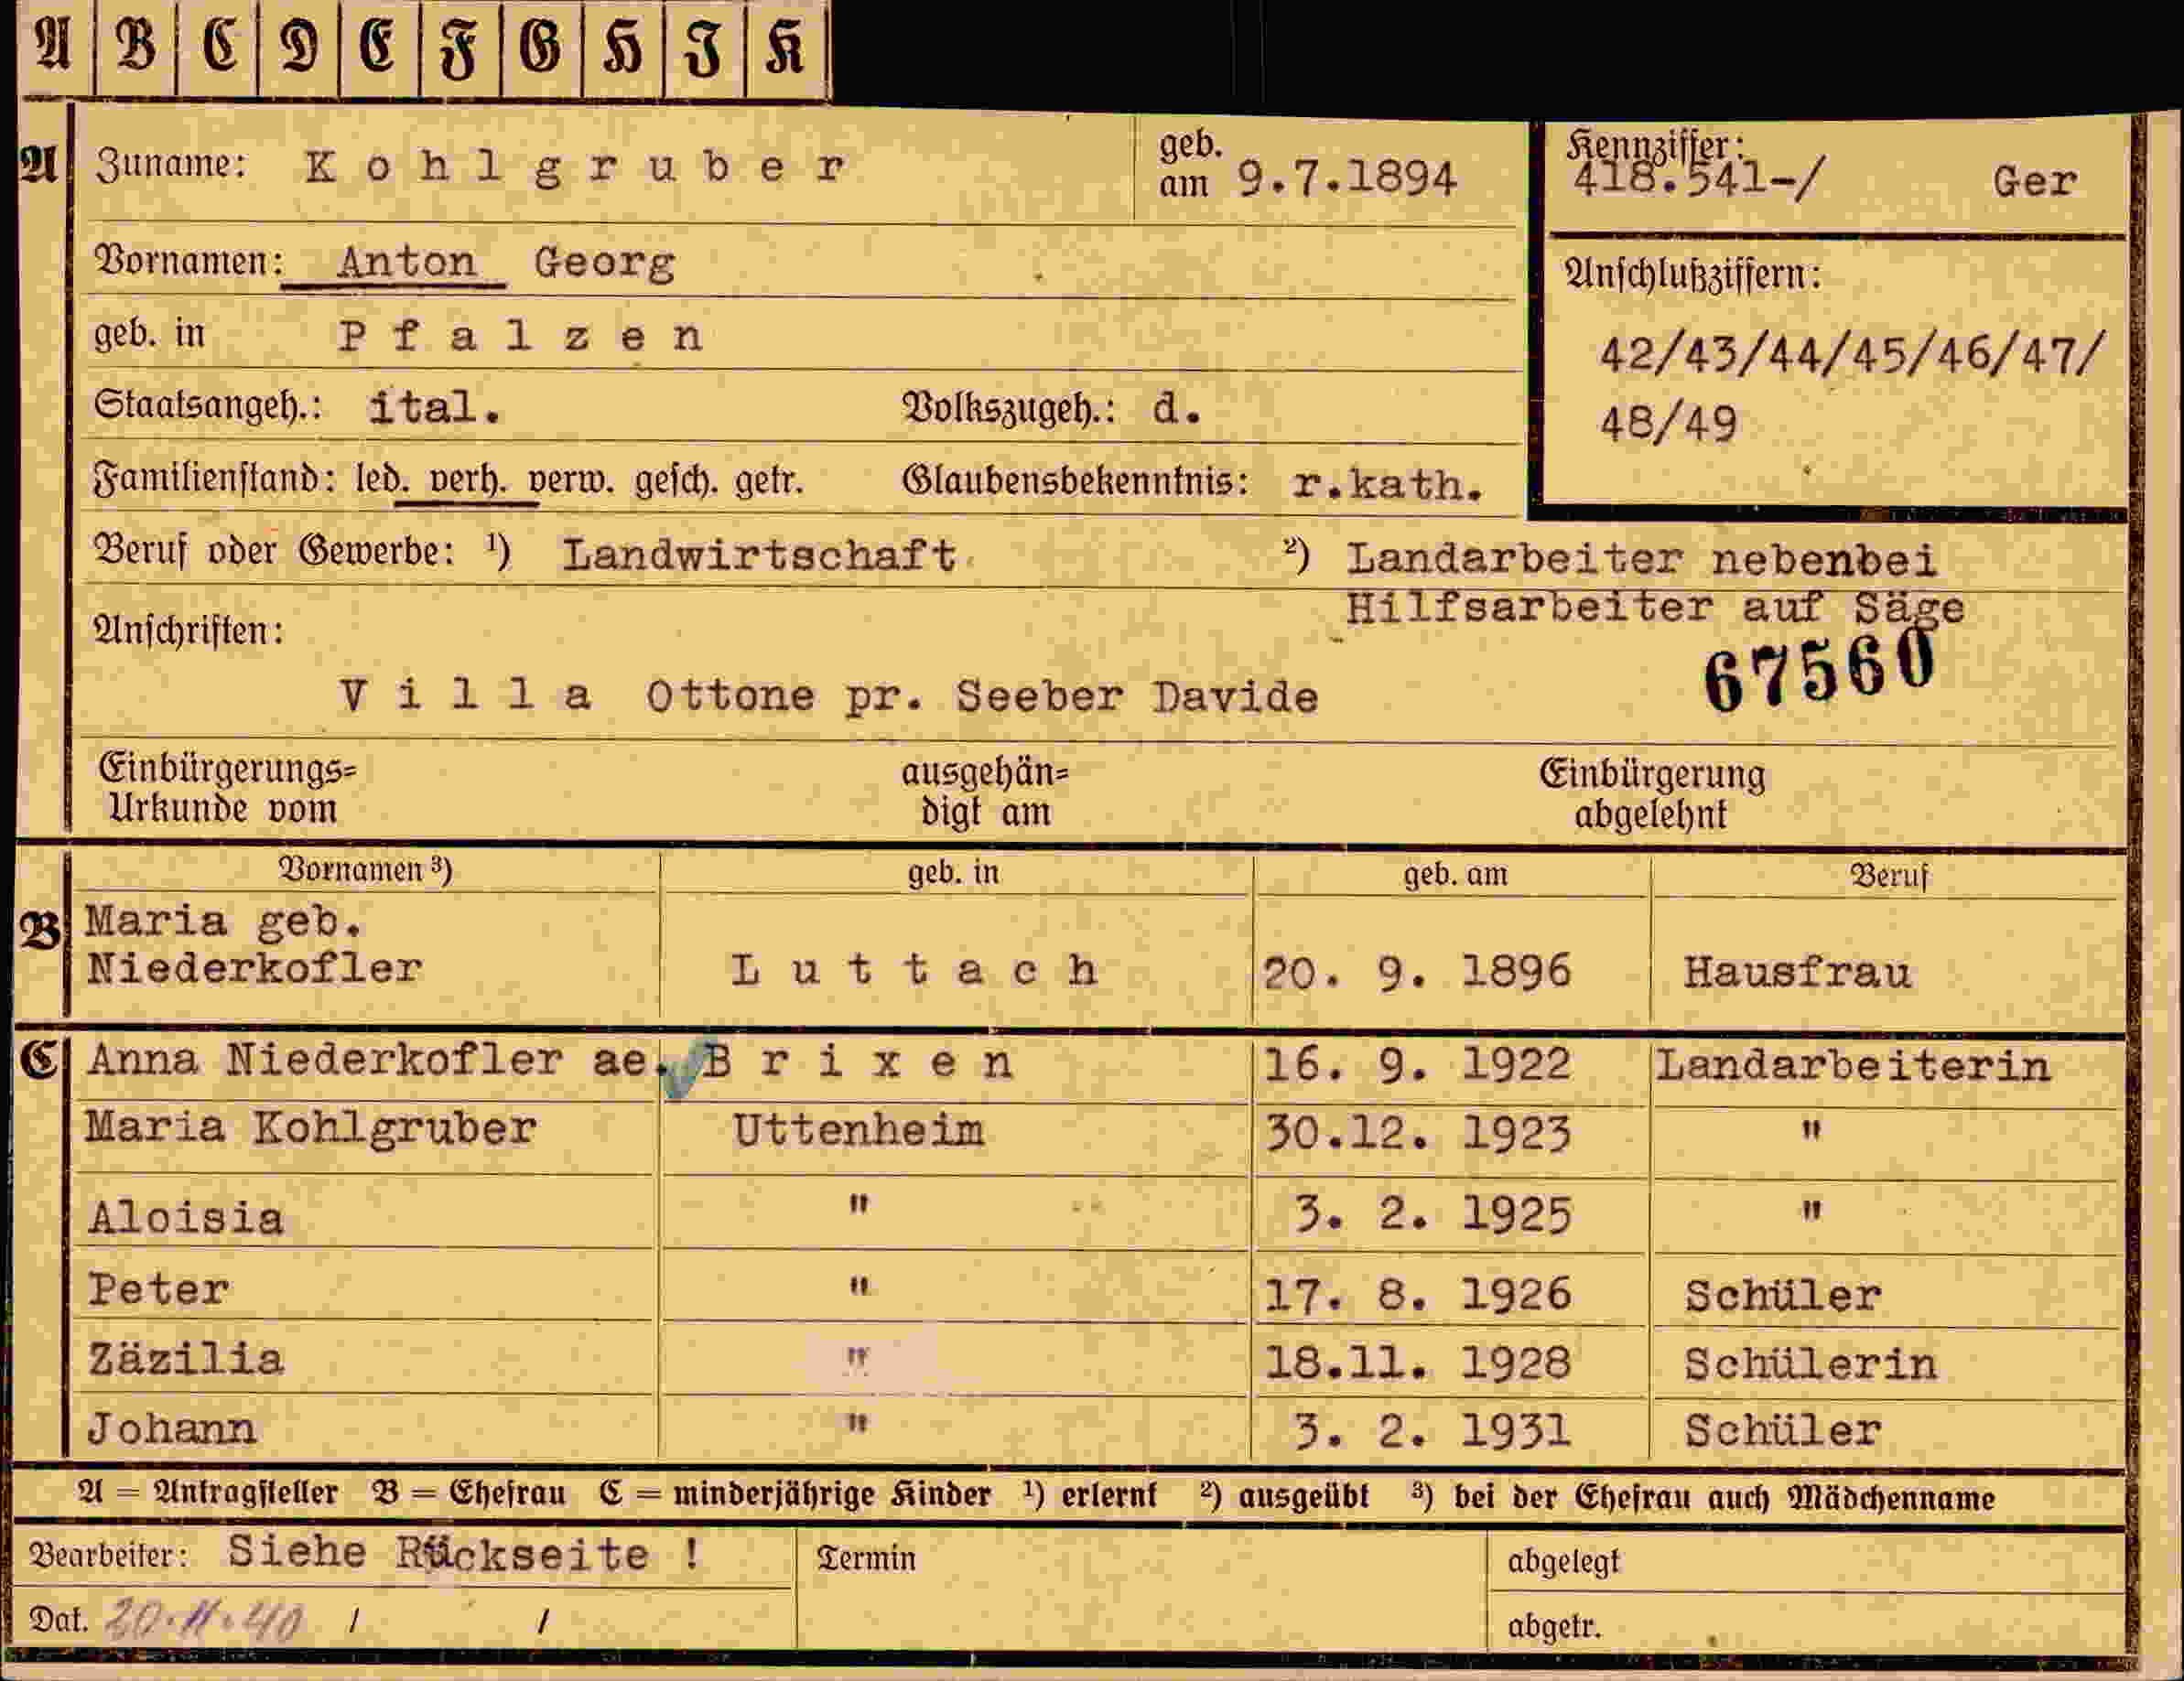 A B C D E F G H I K
A Zuname: Kohlgruber geb. am 9.7.1894 Kennziffer: 418.541-/ Ger
Vornamen: Anton Georg Anschlußziffern:
geb. in Pfalzen 42/43/44/45/46/47/
Staatsangeh.: ital. Volkszugeh.: d. 48/49
Familienstand: led. verh. verw. gesch. getr. Glaubensbekenntnis: r.kath.
Beruf oder Gewerbe: ¹) Landwirtschaft ²) Landarbeiter nebenbei
Hilfsarbeiter auf Säge
Anschriften:
67560
Villa Ottone pr. Seeber Davide
Einbürgerungs= ausgehän= Einbürgerung
Urkunde vom digt am abgelehnt
Vornamen ³) geb. in geb. am Beruf
B Maria geb.
Niederkofler Luttach 20. 9. 1896 Hausfrau
C Anna Niederkofler ae. Brixen 16. 9. 1922 Landarbeiterin
Maria Kohlgruber Uttenheim 30.12. 1923 "
Aloisia " 3. 2. 1925 "
Peter " 17. 8. 1926 Schüler
Zäzilia " 18.11. 1928 Schülerin
Johann " 3. 2. 1931 Schüler
A = Antragsteller B = Ehefrau C = minderjährige Kinder ¹) erlernt ²) ausgeübt ³) bei der Ehefrau auch Mädchenname
Bearbeiter: Siehe Rückseite ! Termin abgelegt
Dat. 20.11.40 / / abgetr.